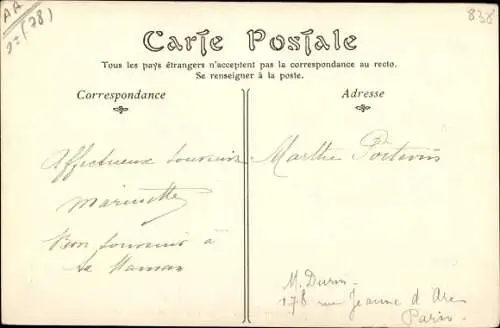 AA
2= (78)
838
Carte Postale
Tous les pays étrangers n'acceptent pas la correspondance au recto.
Se renseigner à la poste.
Correspondance
Adresse
Affectueux souvenir
Marinette
Bon souvenir à
ta Maman
Marthe Poitevin
M. Durin
178 rue Jeanne d'Arc
Paris